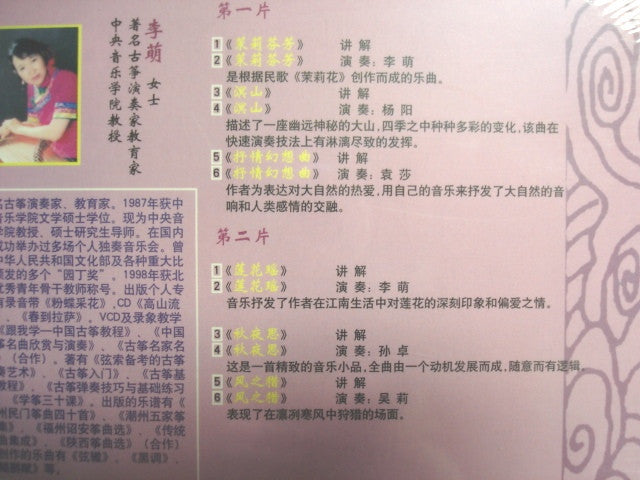 李萌 女士
著名古筝演奏家教育家
中央音乐学院教授
名古筝演奏家、教育家。1987年获中
音乐学院文学硕士学位。现为中央音
学院教授、硕士研究生导师。在国内
成功举办过多场个人独奏音乐会。曾
中华人民共和国文化部及各种重大比
颁发的多个“园丁奖”。1998年获北
优秀青年骨干教师称号。出版个人专
有录音带《粉蝶采花》,CD《高山流
、《春到拉萨》。VCD及录象教学
《跟我学—中国古筝教程》、《中国
筝名曲欣赏与演奏》、《古筝名家名
》（合作）。著有《弦索备考的古筝
奏艺术》、《古筝入门》、《古筝基
教程》、《古筝弹奏技巧与基础练习
《学筝三十课》。出版的乐谱有《
州民门筝曲四十首》、《潮州五家筝
集》、《福州诏安筝曲选》、《传统
曲集成》、《陕西筝曲选》（合作）
创作的乐曲有《弦辙》、《黑调》、
等。
第一片
1《茉莉芬芳》 讲 解
2《茉莉芬芳》 演 奏：李 萌
是根据民歌《茉莉花》创作而成的乐曲。
3《溟山》 讲 解
4《溟山》 演 奏：杨 阳
描述了一座幽远神秘的大山，四季之中种种多彩的变化，该曲在
快速演奏技法上有淋漓尽致的发挥。
5《抒情幻想曲》 讲 解
6《抒情幻想曲》 演 奏：袁 莎
作者为表达对大自然的热爱，用自己的音乐来抒发了大自然的音
响和人类感情的交融。
第二片
1《莲花瑶》 讲 解
2《莲花瑶》 演 奏：李 萌
音乐抒发了作者在江南生活中对莲花的深刻印象和偏爱之情。
3《秋夜思》 讲 解
4《秋夜思》 演 奏：孙 卓
这是一首精致的音乐小品，全曲由一个动机发展而成，随意而有逻辑。
5《风之猎》 讲 解
6《风之猎》 演 奏：吴 莉
表现了在凛冽寒风中狩猎的场面。